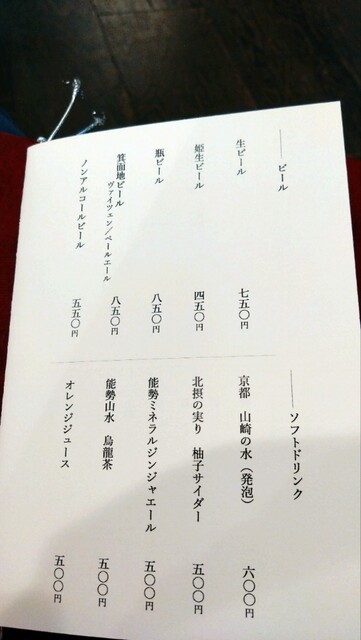 ビール
生ビール 七五〇円
姫生ビール 四五〇円
瓶ビール 八五〇円
箕面地ビール
ヴァイツェン/ペールエール 八五〇円
ノンアルコールビール 五五〇円
ソフトドリンク
京都 山崎の水(発泡) 六〇〇円
北摂の実り 柚子サイダー 五〇〇円
能勢ミネラルジンジャエール 五〇〇円
能勢山水 烏龍茶 五〇〇円
オレンジジュース 五〇〇円